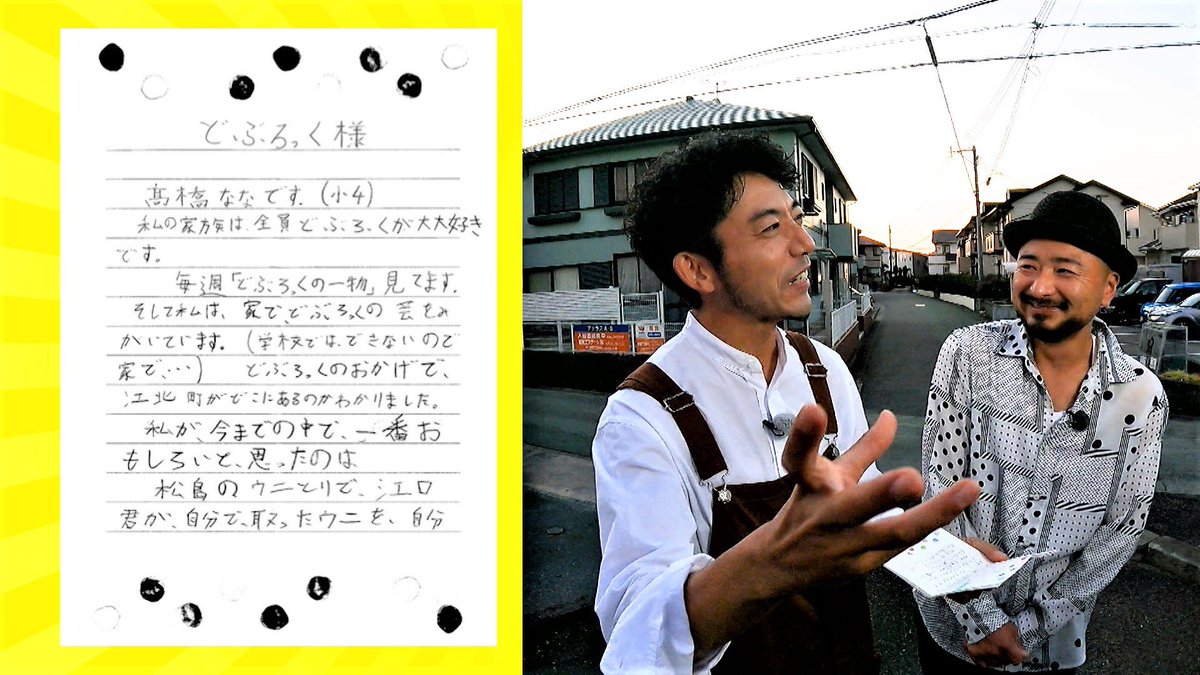 どぶろっく様
髙橋ななです.(小4)
私の家族は、全員どぶろっくが大大好き
です。
毎週「どぶろっくの一物」見てます.
そして私は、家で、どぶろっくの芸をみ
がいています。(学校では、できないので
家で、…) どぶろっくのおかげで、
江北町がどこにあるのかわかりました。
私が、今までの中で、一番お
もしろいと、思ったのは
松島のウニとりで、江口
君が、自分で、取ったウニを、自分